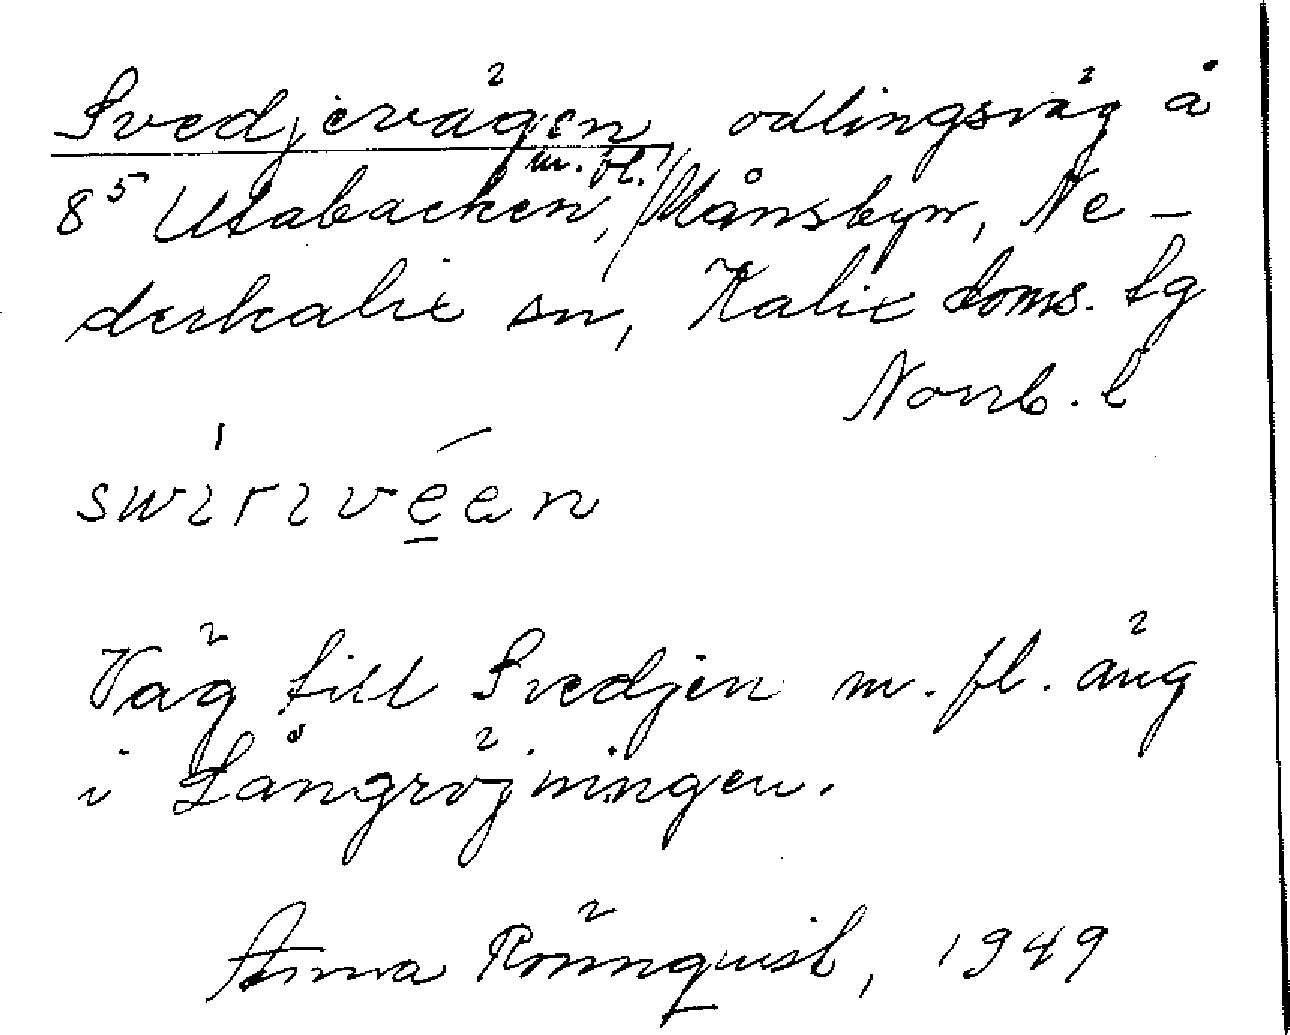 Svedjevägen, odlingsväg å
8⁵ Utabacken, m. fl. Månsbyn, Ne-
derkalix sn, Kalix doms. tg
Norrb. l
swiriveen
Väg till Svedjen m. fl. äng
i Långröjningen.
Anna Rönnquist, 1949